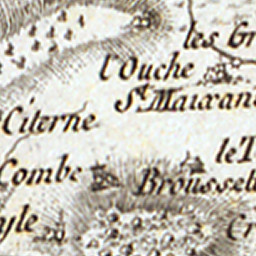 les Gr
l'Ouche
St. Maixan
Citerne
le T
Combe
Broussel
yle
Cr